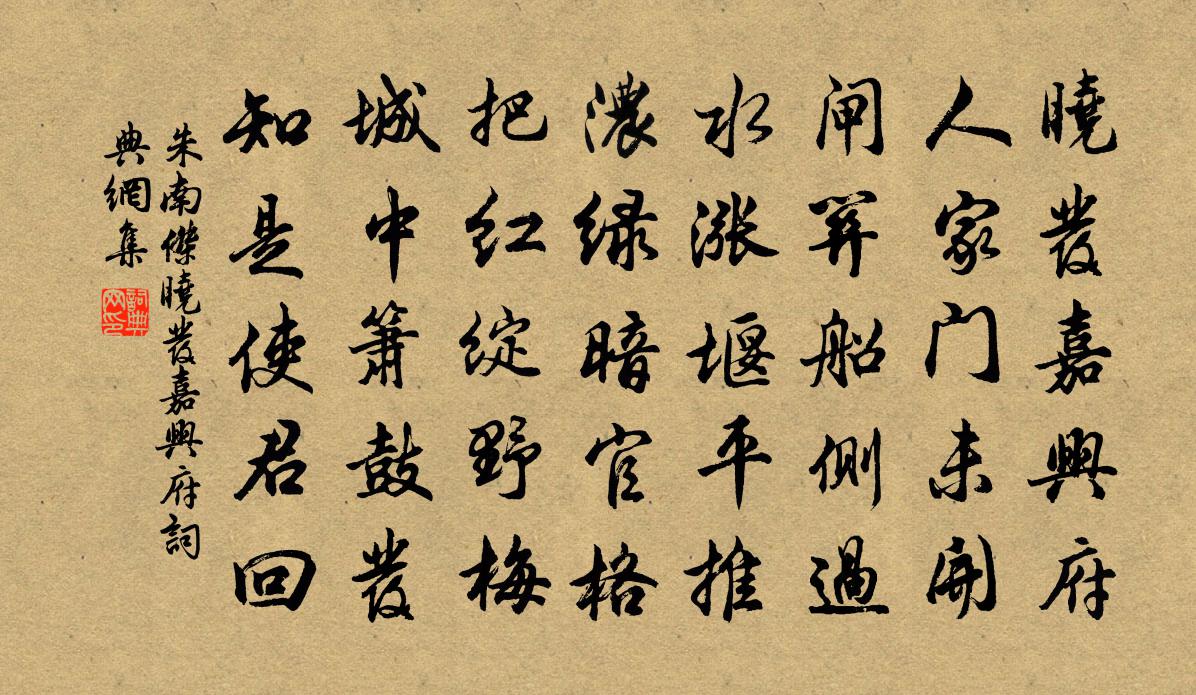 曉發嘉興府
人家门未開
闸船側過
水漲堰平推
濃緑暗官格
把紅綻野梅
城中簫鼓發
知是使君回
朱南傑曉發嘉興府詞
典網集
詞典
网印